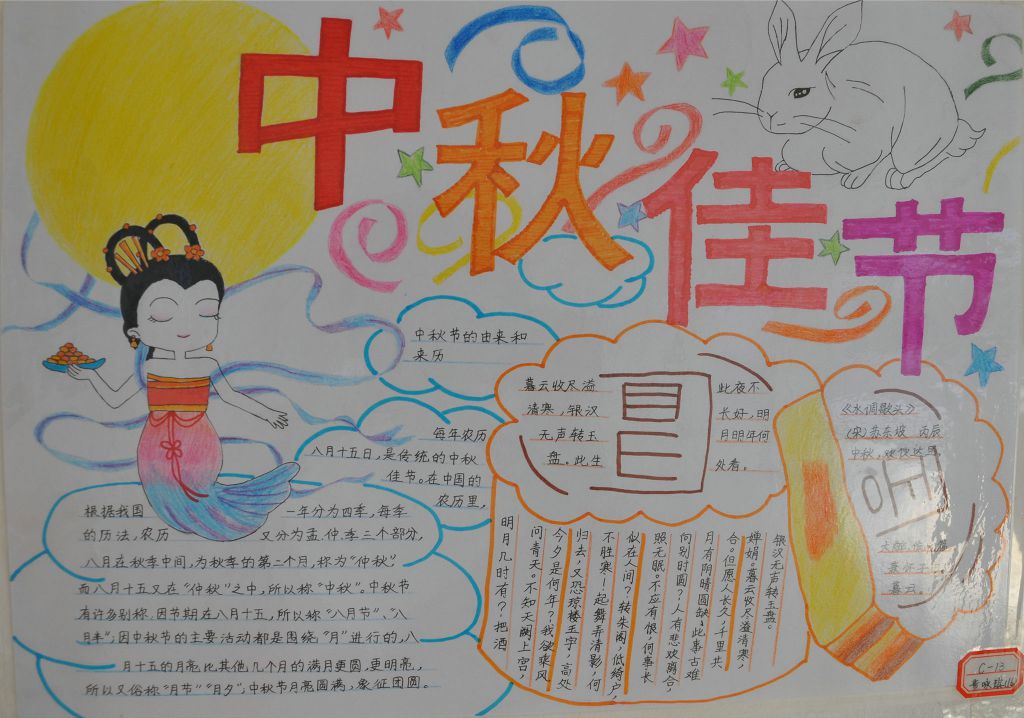 中秋佳节
中秋节的由来和
来历
每年农历
八月十五日，是传统的中秋
佳节。在中国的
农历里，
根据我国
一年分为四季，每季
的历法，农历
又分为孟.仲.季三个部分，
八月在秋季中间，为秋季的第二个月，称为“仲秋”，
而八月十五又在“仲秋”之中，所以称“中秋”。中秋节
有许多别称.因节期在八月十五，所以称“八月节”、“八
月半”，因中秋节的主要活动都是围绕“月”进行的，八
月十五的月亮比其他几个月的满月更圆，更明亮，
所以又俗称“月节”“月夕”，中秋节月亮圆满，象征团圆。
暮云收尽溢
清寒，银汉
无声转玉
盘。此生
此夜不
长好，明
月明年何
处看。
《水调歌头》
(宋)苏东坡 丙辰
中秋，欢饮达旦，
暮云。
银汉无声转玉盘。
婵娟。暮云收尽溢清寒，
合。但愿人长久，千里共
月有阴晴圆缺，此事古难
向别时圆？人有悲欢离合，
照无眠。不应有恨，何事长
似在人间？转朱阁，低绮户，
不胜寒！起舞弄清影，何
归去，又恐琼楼玉宇，高处
今夕是何年？我欲乘风
问青天。不知天阙上宫，
明月几时有？把酒
C-13